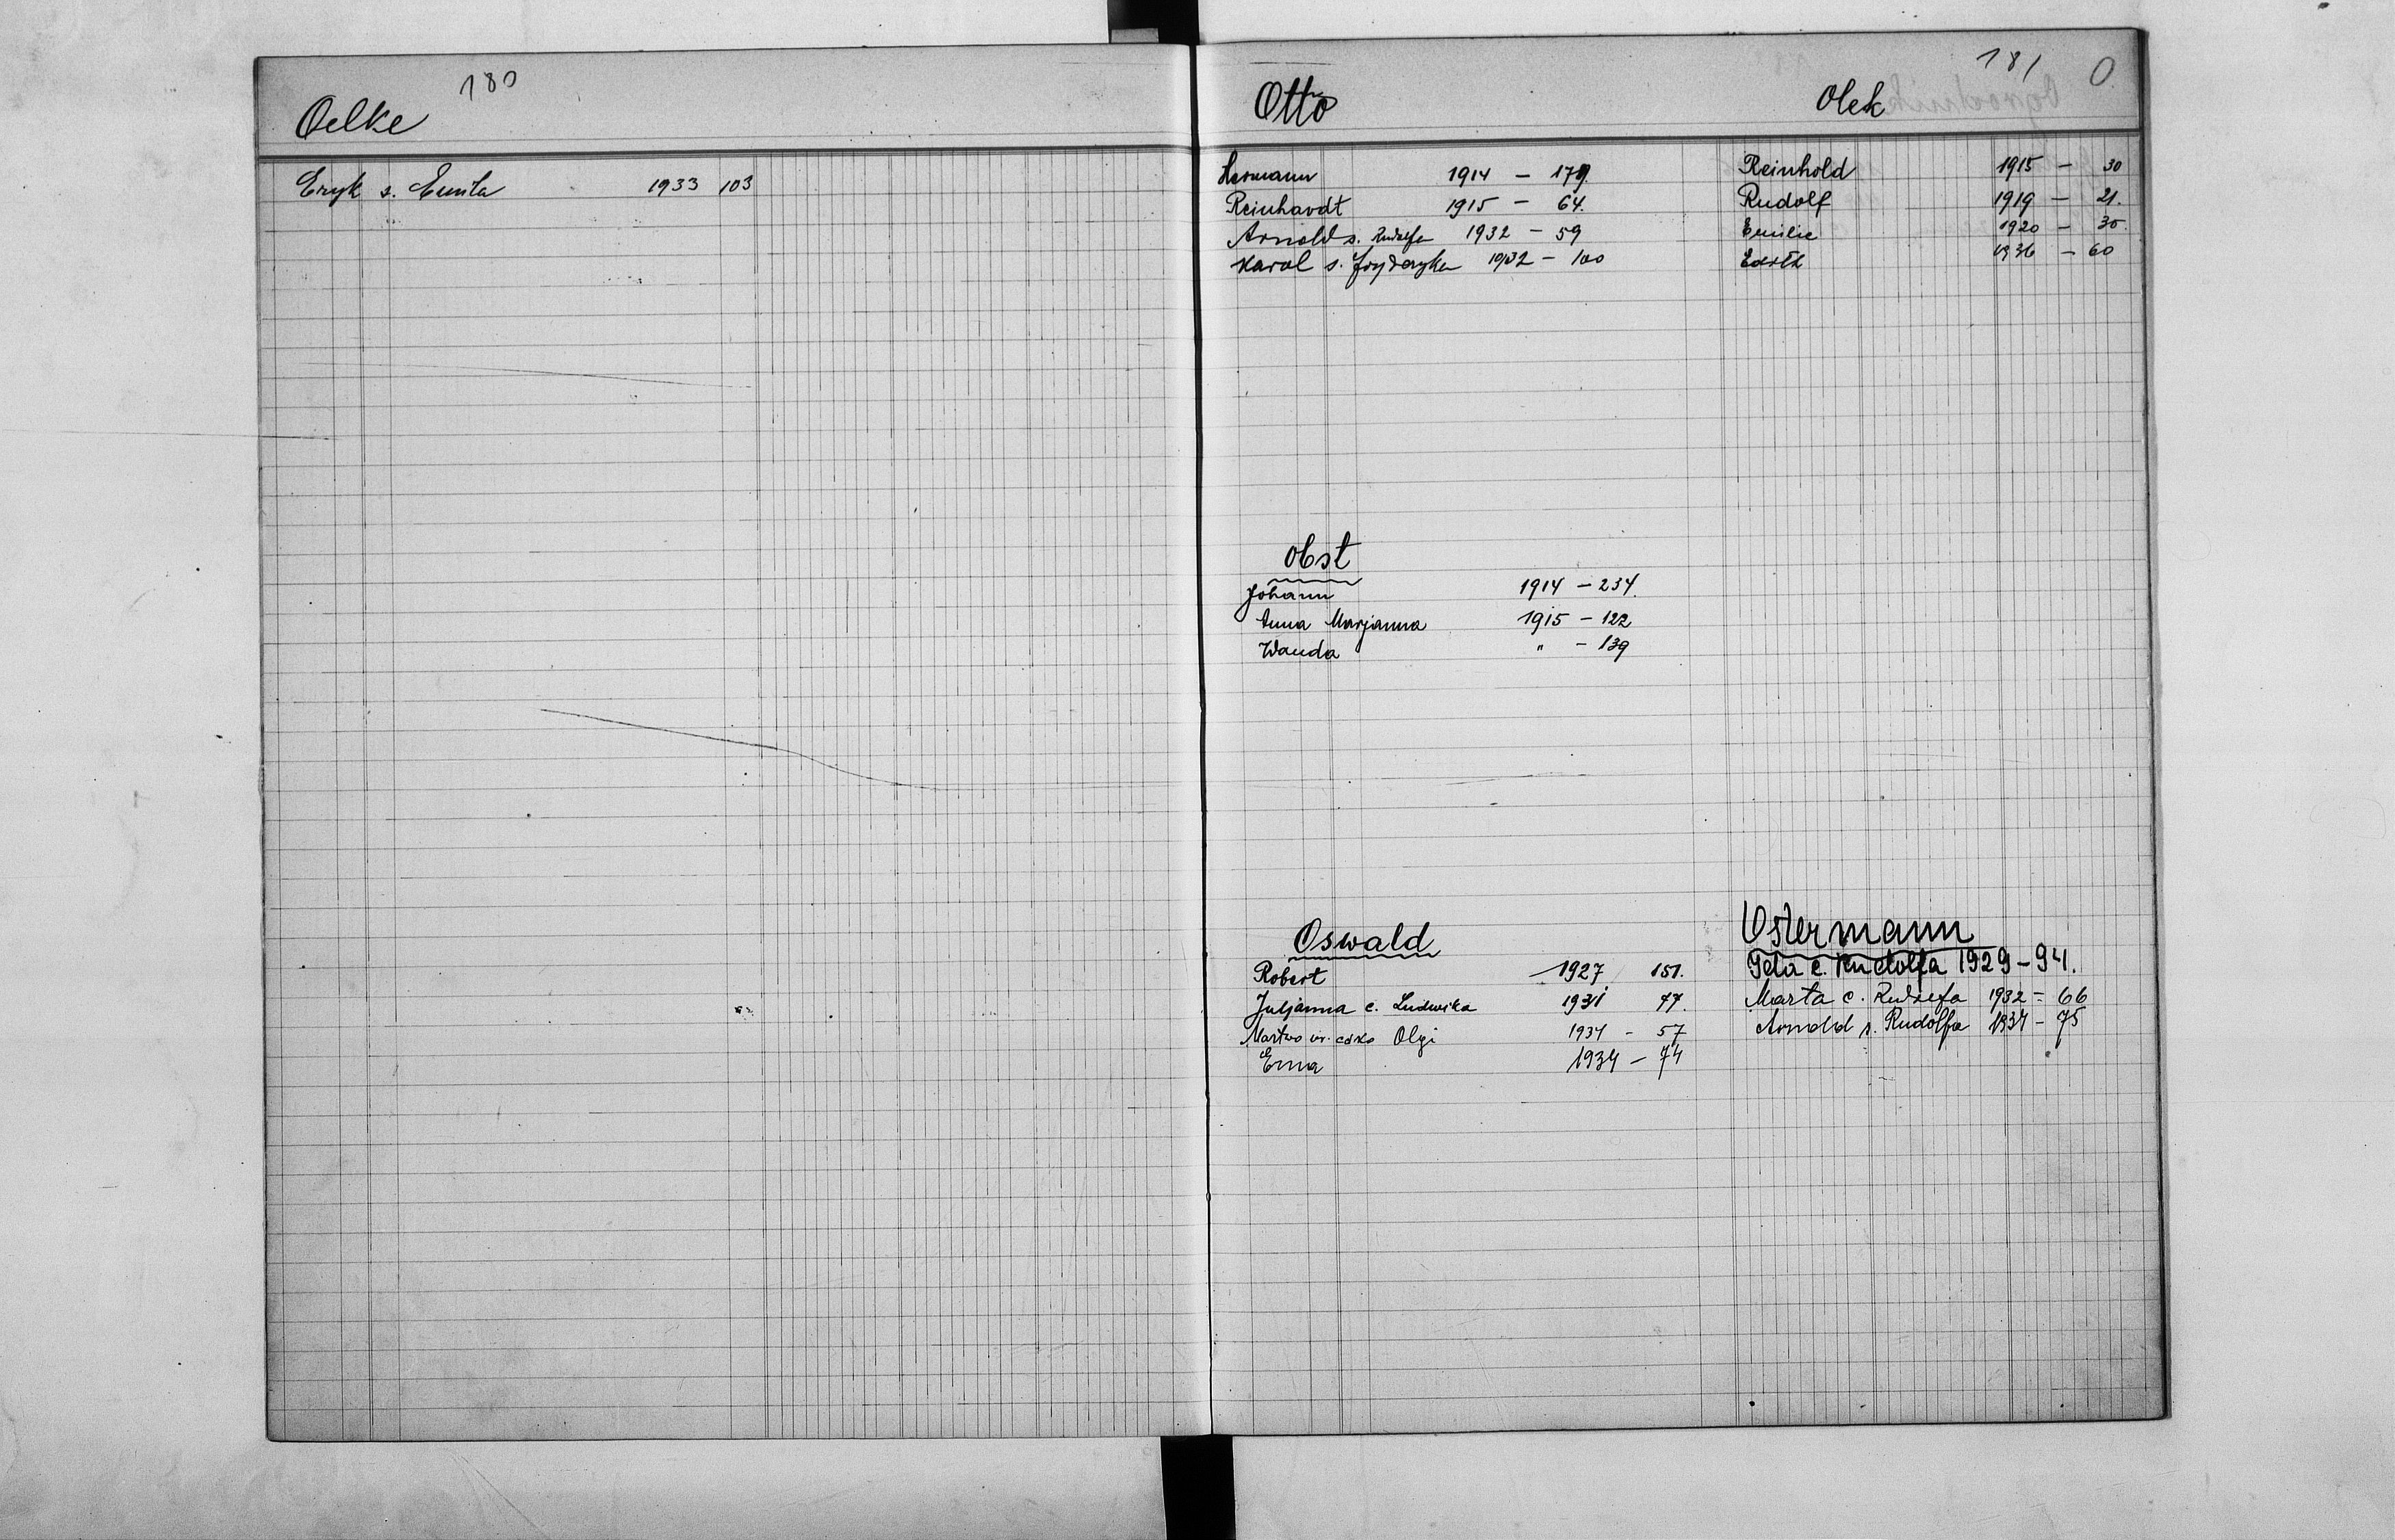 180
Oelke
Eryk s. Emila 1933 103
181 O
Otto
Hermann 1914 – 179.
Reinhardt 1915 – 64.
Arnold s. Rudolfa 1932 – 59
Karol s. Fryderyka 1932 – 100
Olek
Reinhold 1915 – 30
Rudolf 1919 – 21.
Emilie 1920 – 30.
Edith 1936 – 60
Obst
Johann 1914 – 234.
Anna Marjanna 1915 – 122
Wanda " – 139
Oswald
Robert 1927 151.
Juljanna c. Ludwika 1931 77.
Martwo ur. córka Olgi 1934 – 57
Erna 1934 – 74
Ostermann
Ida c. Rudolfa 1929 – 94.
Marta c. Rudolfa 1932 – 66
Arnold s. Rudolfa 1934 – 75